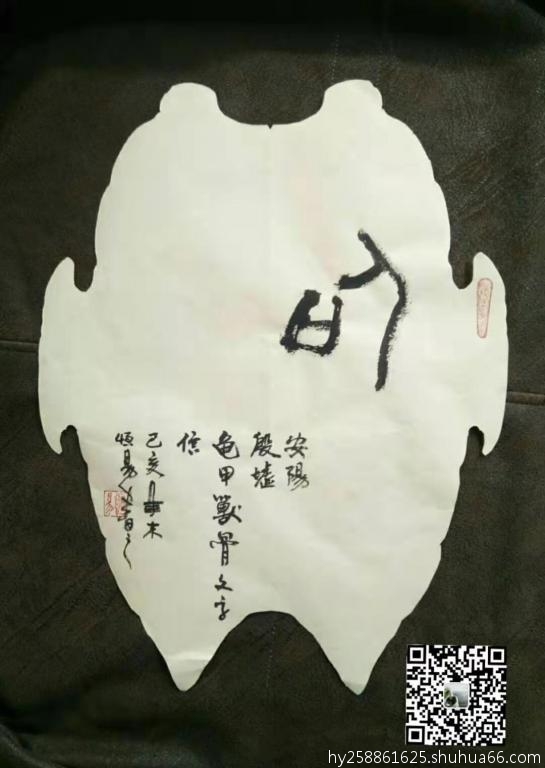 信
安陽
殷墟
龟甲獸骨文字
信
己亥
恒易
hy258861625.shuhua66.com